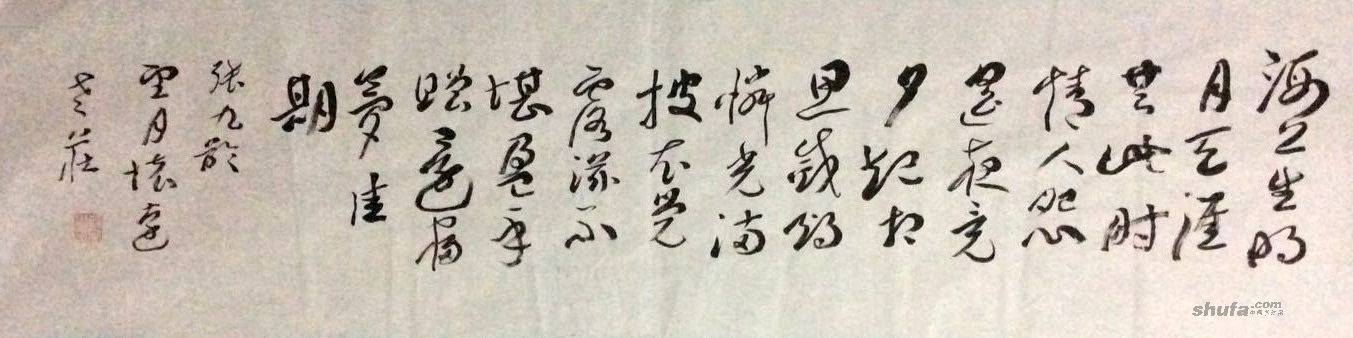 海上生明
月天涯
共此时
情人怨
遥夜竟
夕起相
思灭烛
怜光满
披衣觉
露滋不
堪盈手
赠还寝
梦佳
期
张九龄
望月怀远
老庄
shufa.com